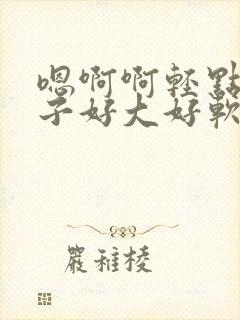 嗯啊啊轻點
子好大好軟
嚴稚棱